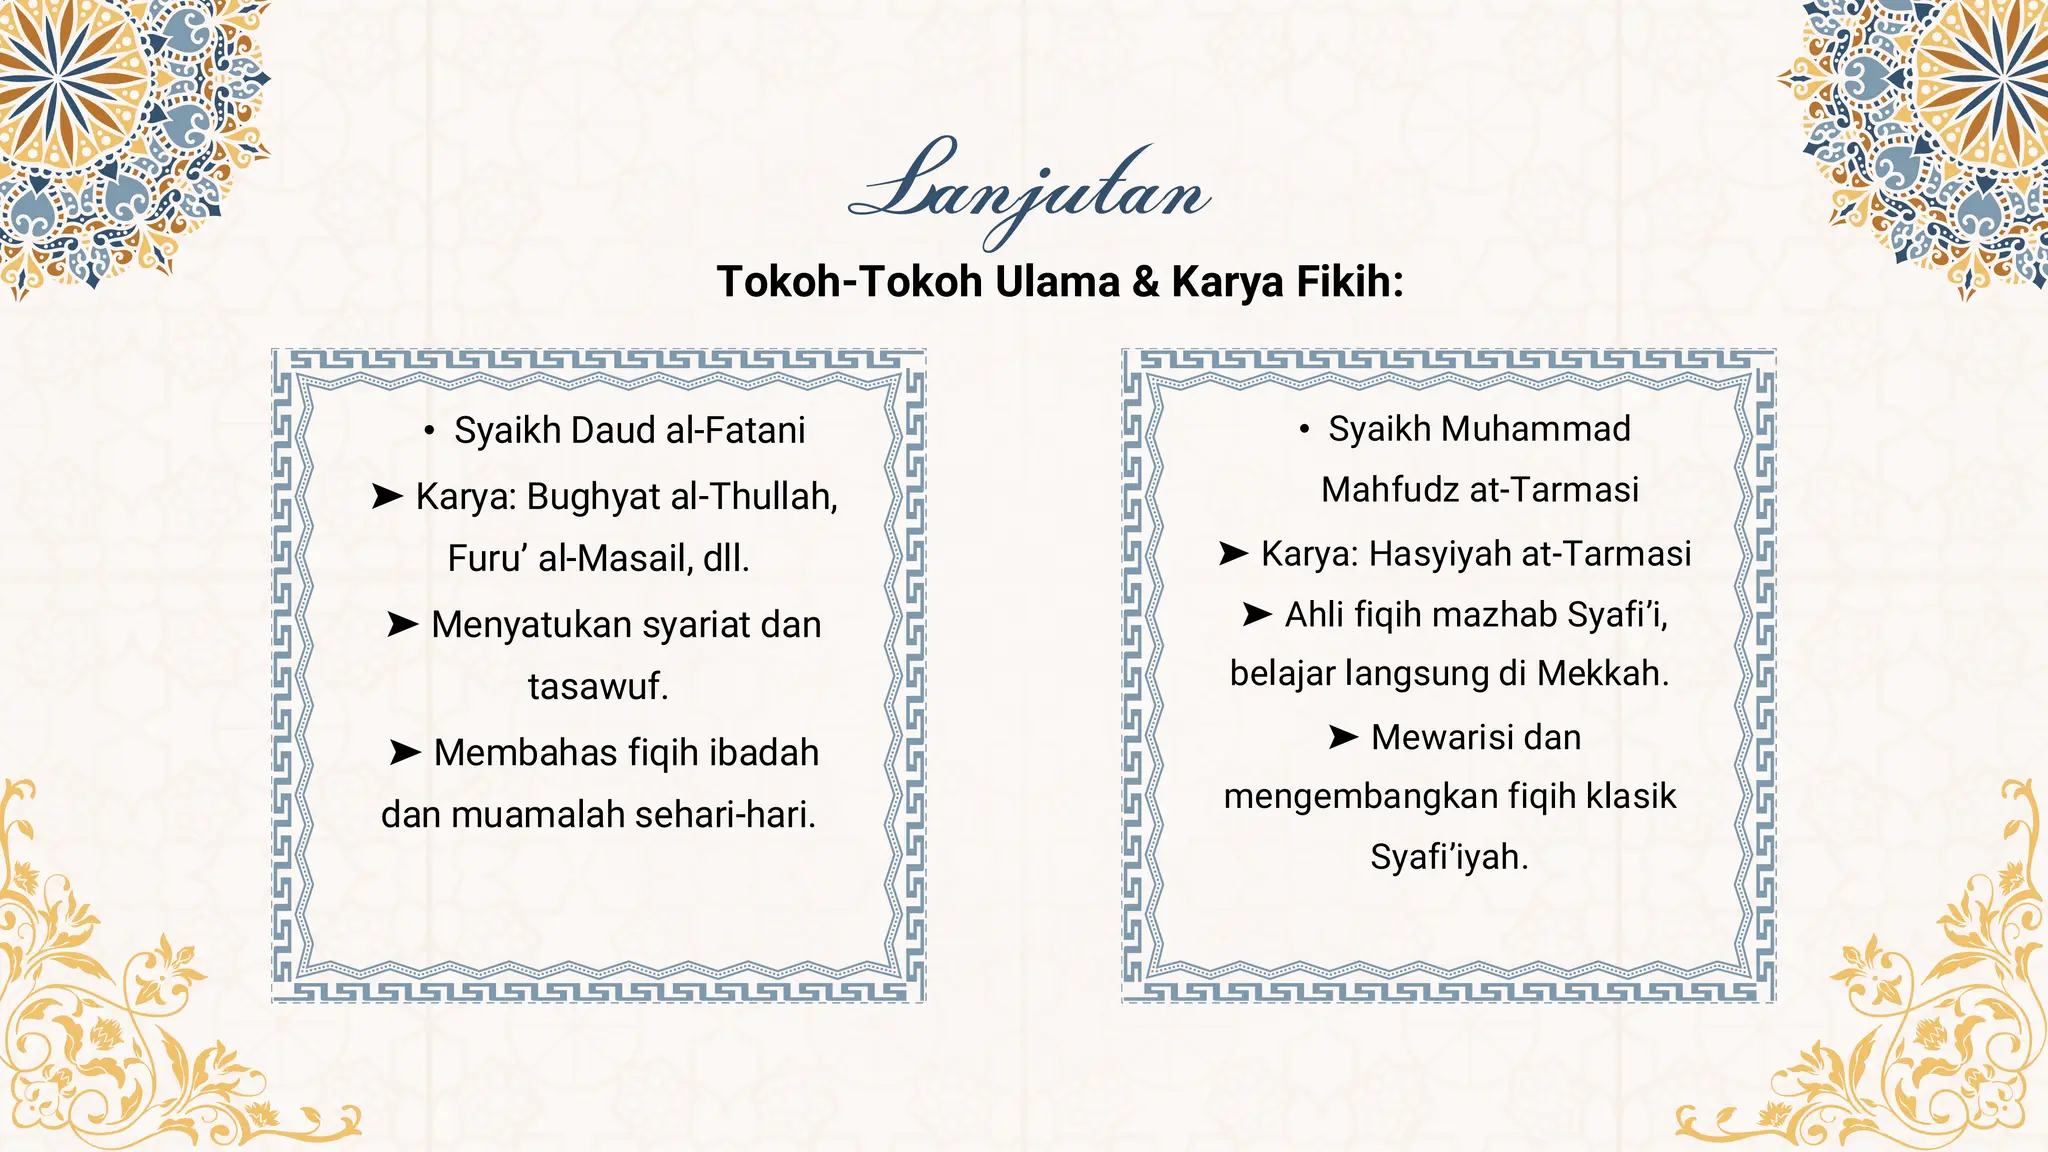 Lanjutan
Tokoh-Tokoh Ulama & Karya Fikih:
• Syaikh Daud al-Fatani
➤ Karya: Bughyat al-Thullah,
Furu’ al-Masail, dll.
➤ Menyatukan syariat dan
tasawuf.
➤ Membahas fiqih ibadah
dan muamalah sehari-hari.
• Syaikh Muhammad
Mahfudz at-Tarmasi
➤ Karya: Hasyiyah at-Tarmasi
➤ Ahli fiqih mazhab Syafi’i,
belajar langsung di Mekkah.
➤ Mewarisi dan
mengembangkan fiqih klasik
Syafi’iyah.